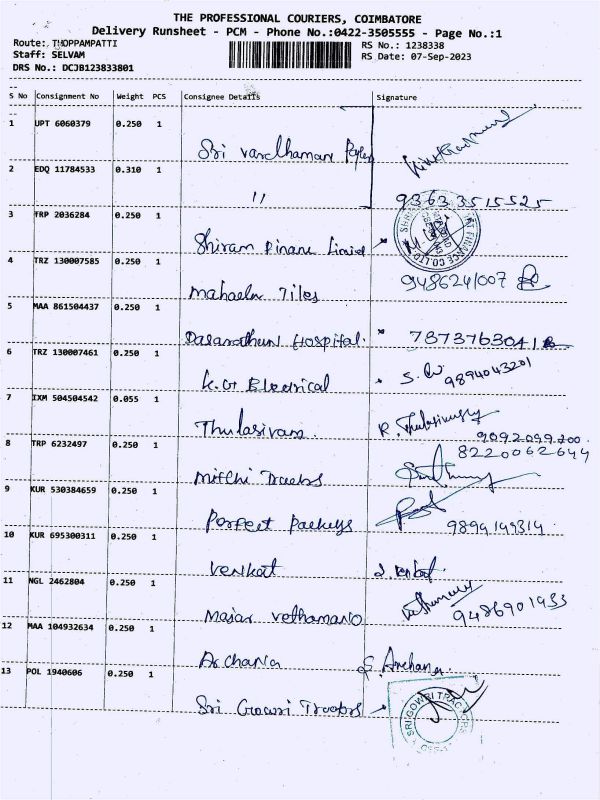 THE PROFESSIONAL COURIERS, COIMBATORE
Delivery Runsheet - PCM - Phone No.:0422-3505555 - Page No.:1
Route: THOPPAMPATTI RS No.: 1238338
Staff: SELVAM RS Date: 07-Sep-2023
DRS No.: DCJB123833801
S No Consignment No Weight PCS Consignee Details Signature
1 UPT 6060379 0.250 1
Sri Vardhaman
2 EDQ 11784533 0.310 1
11 9363515525
3 TRP 2036284 0.250 1
Shriram Finance Limited
4 TRZ 130007585 0.250 1
Tiles 9486241007
5 MAA 861504437 0.250 1
Hospital. 7873763041
6 TRZ 130007461 0.250 1
Electrical 9894043201
7 IXM 504504542 0.055 1
Thulasiram. R. 9092099200
8 TRP 6232497 0.250 1 8220062644
9 KUR 530384659 0.250 1
Perfect 9894149314
10 KUR 695300311 0.250 1
Venkat
11 NGL 2462804 0.250 1
Vethamano 9486901933
12 MAA 104932634 0.250 1
Archana S. Archana.
13 POL 1940606 0.250 1
Sri Gowri Tractors SRI GOWRI TRACTORS